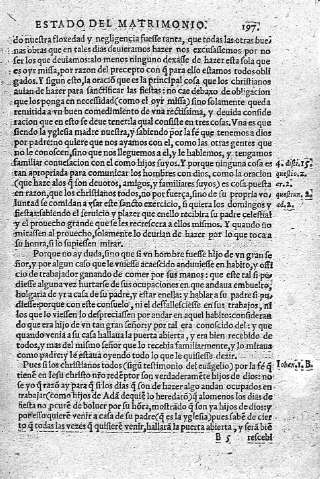 ESTADO DEL MATRIMONIO. 197.
do nuestra floxedad y negligencia fuesse tanta, que todas las otras bue-
nas obras que en tales dias deuieramos hazer nos excusassemos por no
ser los que deuiamos: alo menos ninguno dexasse de hazer esta sola que
es oyr missa, por razon del precepto con q̃ para ello estamos todos obli
gados. Y sigun esto, la oraciõ que es la principal cosa que los christianos
auian de hazer para sanctificar las fiestas: no cae debaxo de obligacion
que los ponga en necessidad (como el oyr missa) sino solamente queda
remitida a vn buen comedimiento de vna rectissima, y deuida conside
racion que en este se deue tener la qual consiste en tres cosas. Vna es que
siendo la yglesia madre nuestra, y sabiendo por la fé que tenemos a dios
por padre: no quiere que nos ayamos con el, como las otras gentes que
no le conoscen, sino que nos lleguemos a el, y le hablemos, y tengamos
familiar conuersacion con el como hijos suyos. Y porque ninguna cosa es
tan apropriada para comunicar los hombres con dios, como la oracion
(que haze alos q̃ son deuotos, amigos, y familiares suyos) es cosa puesta
en razon, que los christianos todos, no por fuerça, sino de su propria vo
luntad se comidan a vsar este sancto exercicio, si quiera los domingos y
fiestas: sabiendo el seruicio y plazer que enello recibira su padre celestial
y el prouecho grande que se les recrescera a ellos mismos. Y quando no
mirassen al prouecho, solamente lo deurian de hazer por lo que toca a
su honra, si lo supiessen mirar.
4. dist. 15.
quęstio.
ar. 2.
quęstion. 2.
ad. 2.
Porque no ay duda, sino que si vn hombre fuesse hijo de vn gran se
ñor, y por algun caso que le viniesse acaesciesse andouiesse en habito, y offi
cio de trabajador ganando de comer por sus manos: que este tal si pu
diesse alguna vez hurtarse de sus occupaciones en que andaua embuelto,
holgaria de yr a casa de su padre, y estar enella; y hablar a su padre si pu
diesse: porque con este consuelo, ni el desfallesciesse en sus trabajos, ni
los que lo viessen lo despreciassen por andar en aquel habito: consideran
do que era hijo de vn tan gran señor: y por tal era conoscido del: y que
quando venia a su casa hallaua la puerta abierta, y era bien recebido de
todos, y mas del mismo señor que lo recebia familiarmente, y lo miraua
como padre: y lé estaua oyendo todo lo que le quisiesse dezir.
Pues si los christianos todos (sigũ testimonio del euãgelio) por la fé q̃
tiené en Iesu christo nr̃o redẽptor son verdaderamẽte hijos de dios: no
se yo q̃ razõ ay para q̃ si los dias q̃ son de hazer algo andan ocupados en
trabajar (como hijos de Adã dequiẽ lo heredarõ) q̃ alomenos los dias de
fiesta no procurẽ de boluer por su hõra, mostrãdo q̃ son ya hijos de dios: y
por esso quierẽ venir a casa de su padre (q̃ es la yglesia) pues sabẽ de cier
to q̃ todas las vezes q̃ quisierẽ venir, hallarã la puerta abierta, y serã biẽ
Iohan. 1. B.
B 5 rescebi